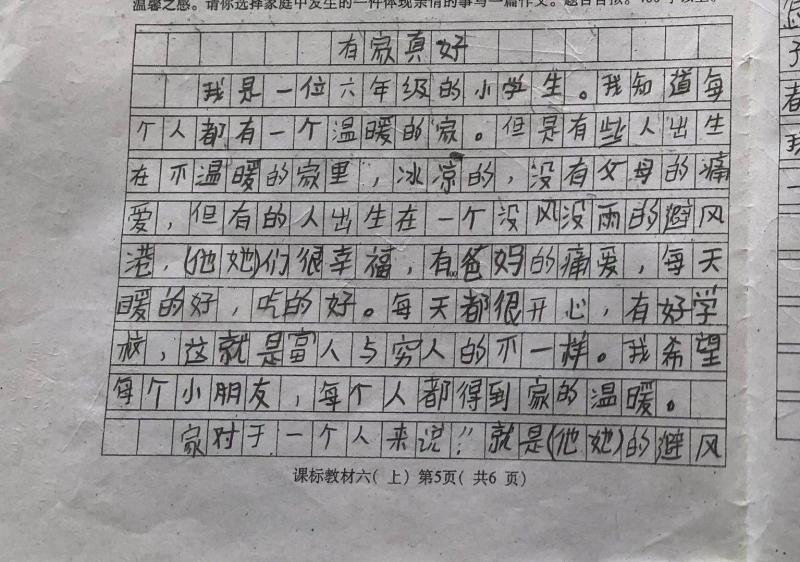 温馨之感。请你选择家庭中发生的一件体现亲情的事写一篇作文。题目自拟。
有家真好
我是一位六年级的小学生。我知道每
个人都有一个温暖的家。但是有些人出生
在不温暖的家里，冰凉的，没有父母的痛
爱，但有的人出生在一个没风没雨的避风
港，(他她)们很幸福，有爸妈的痛爱，每天
暖的好，吃的好。每天都很开心，有好学
校，这就是富人与穷人的不一样。我希望
每个小朋友，每个人都得到家的温暖。
家对于一个人来说！就是(他她)的避风
课标教材六(上) 第5页(共6页)